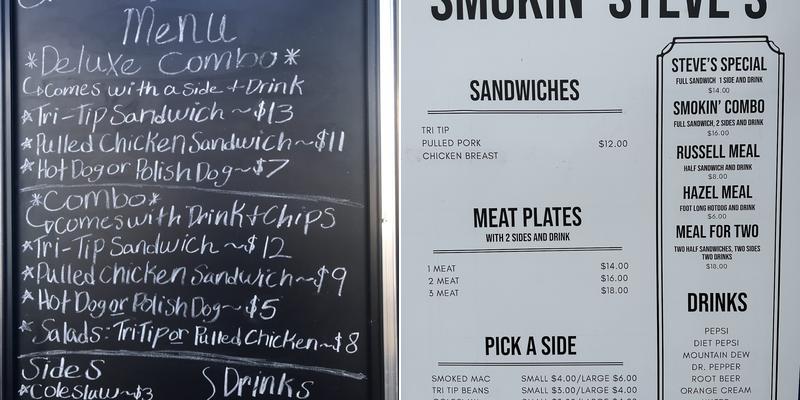 Menu
*Deluxe Combo*
↳comes with a side + Drink
*Tri-Tip Sandwich ~ $13
*Pulled Chicken Sandwich ~ $11
*Hot Dog or Polish Dog ~ $7
*Combo*
↳comes with Drink + Chips
*Tri-Tip Sandwich ~ $12
*Pulled Chicken Sandwich ~ $9
*Hot Dog or Polish Dog ~ $5
*Salads: Tri Tip or Pulled Chicken ~ $8
Sides
*Coleslaw ~ $3
Drinks
SMOKIN' STEVE'S
SANDWICHES
TRI TIP
PULLED PORK $12.00
CHICKEN BREAST
MEAT PLATES
WITH 2 SIDES AND DRINK
1 MEAT $14.00
2 MEAT $16.00
3 MEAT $18.00
PICK A SIDE
SMOKED MAC SMALL $4.00/LARGE $6.00
TRI TIP BEANS SMALL $3.00/LARGE $4.00
STEVE'S SPECIAL
FULL SANDWICH 1 SIDE AND DRINK
$14.00
SMOKIN' COMBO
FULL SANDWICH, 2 SIDES AND DRINK
$16.00
RUSSELL MEAL
HALF SANDWICH AND DRINK
$8.00
HAZEL MEAL
FOOT LONG HOTDOG AND DRINK
$6.00
MEAL FOR TWO
TWO HALF SANDWICHES, TWO SIDES
TWO DRINKS
$18.00
DRINKS
PEPSI
DIET PEPSI
MOUNTAIN DEW
DR. PEPPER
ROOT BEER
ORANGE CREAM